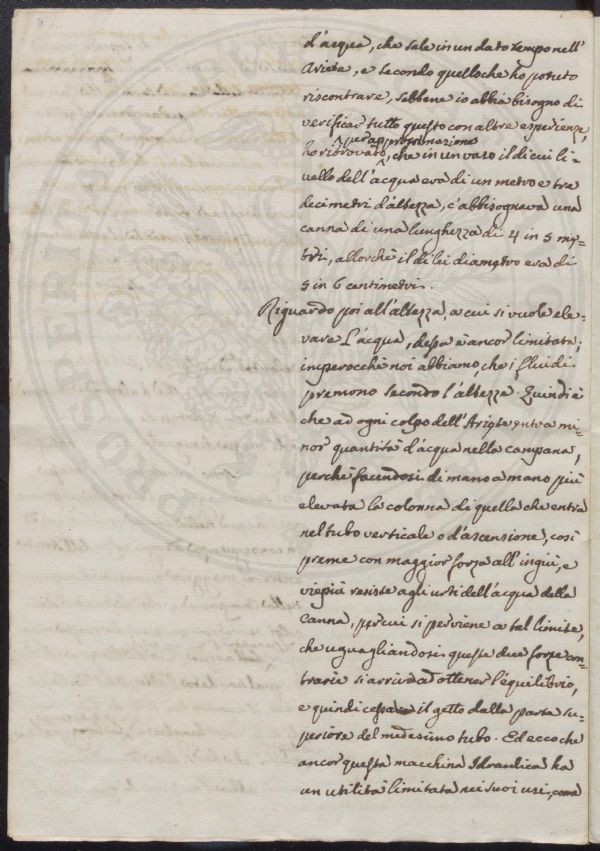 d'acqua, che sale in un dato tempo nell'
Ariete, e secondo quello che ho potuto
riscontrare, sebbene io abbia bisogno di
verificar tutto questo con altre esperienze,
per approssimazione
ho ritrovato, che in un vaso il di cui li=
vello dell'acqua era di un metro e tre
decimetri d'altezza, c'abbisognava una
canna di una lunghezza di 4 in 5 me=
tri, allorchè il di lei diametro era di
5 in 6 centimetri.
Riguardo poi all'altezza, a cui si vuole ele=
vare l'acqua, dessa è ancor limitata;
imperocchè noi abbiamo, che i fluidi
premono secondo l'altezza. Quindi è
che ad ogni colpo dell'Ariete entra mi=
nor quantità d'acqua nella campana,
perchè facendosi di mano a mano più
elevata la colonna di quella che entra
nel tubo verticale o d'ascensione, così
preme con maggior forza all'ingiù, e
viepiù resiste agli urti dell'acqua della
canna, per cui si perviene a tal limite,
che uguagliandosi queste due forze con=
trarie si arriva ad ottener l'equilibrio,
e quindi cessare il getto dalla parte su=
periore del medesimo tubo. Ed ecco che
ancor questa macchina Idraulica ha
un utilità limitata nei suoi usi,